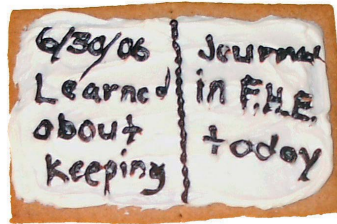 6/30/06
Learned
about
keeping
Journal
in F.H.E.
today